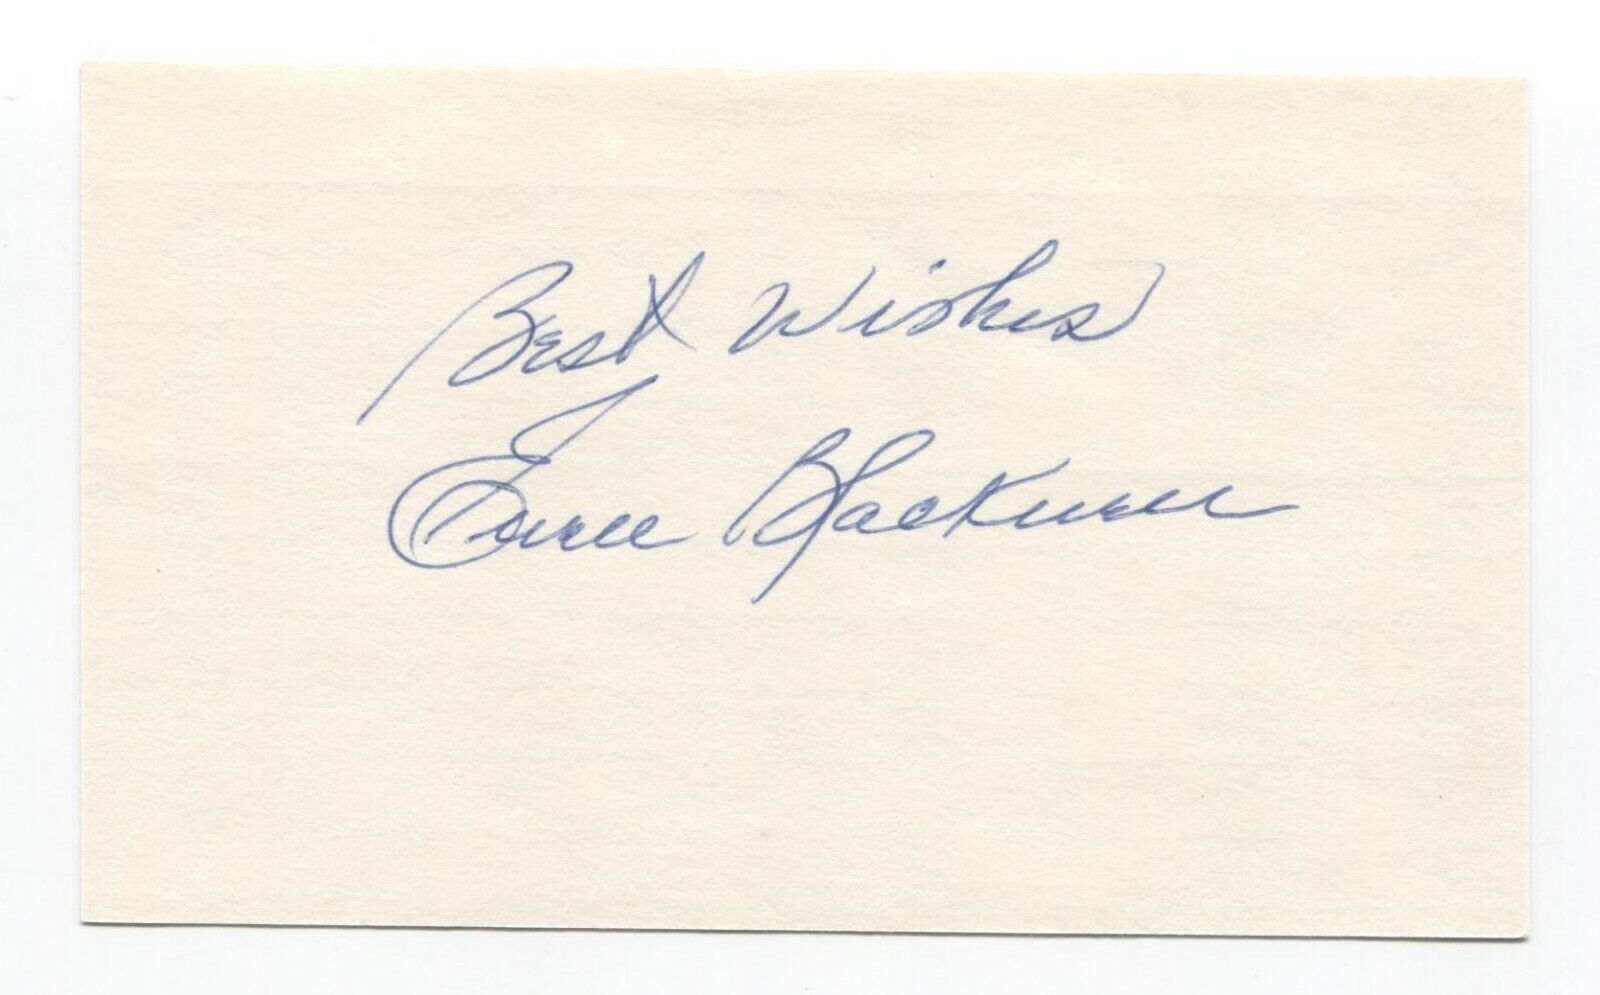 Best Wishes
Ewell Blackwell